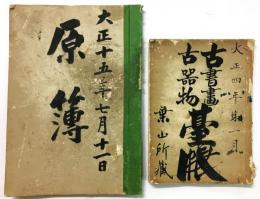 大正十五年七月十一日
原簿
大正四年第一月
古書畫
古器物
臺帳
栗山所蔵